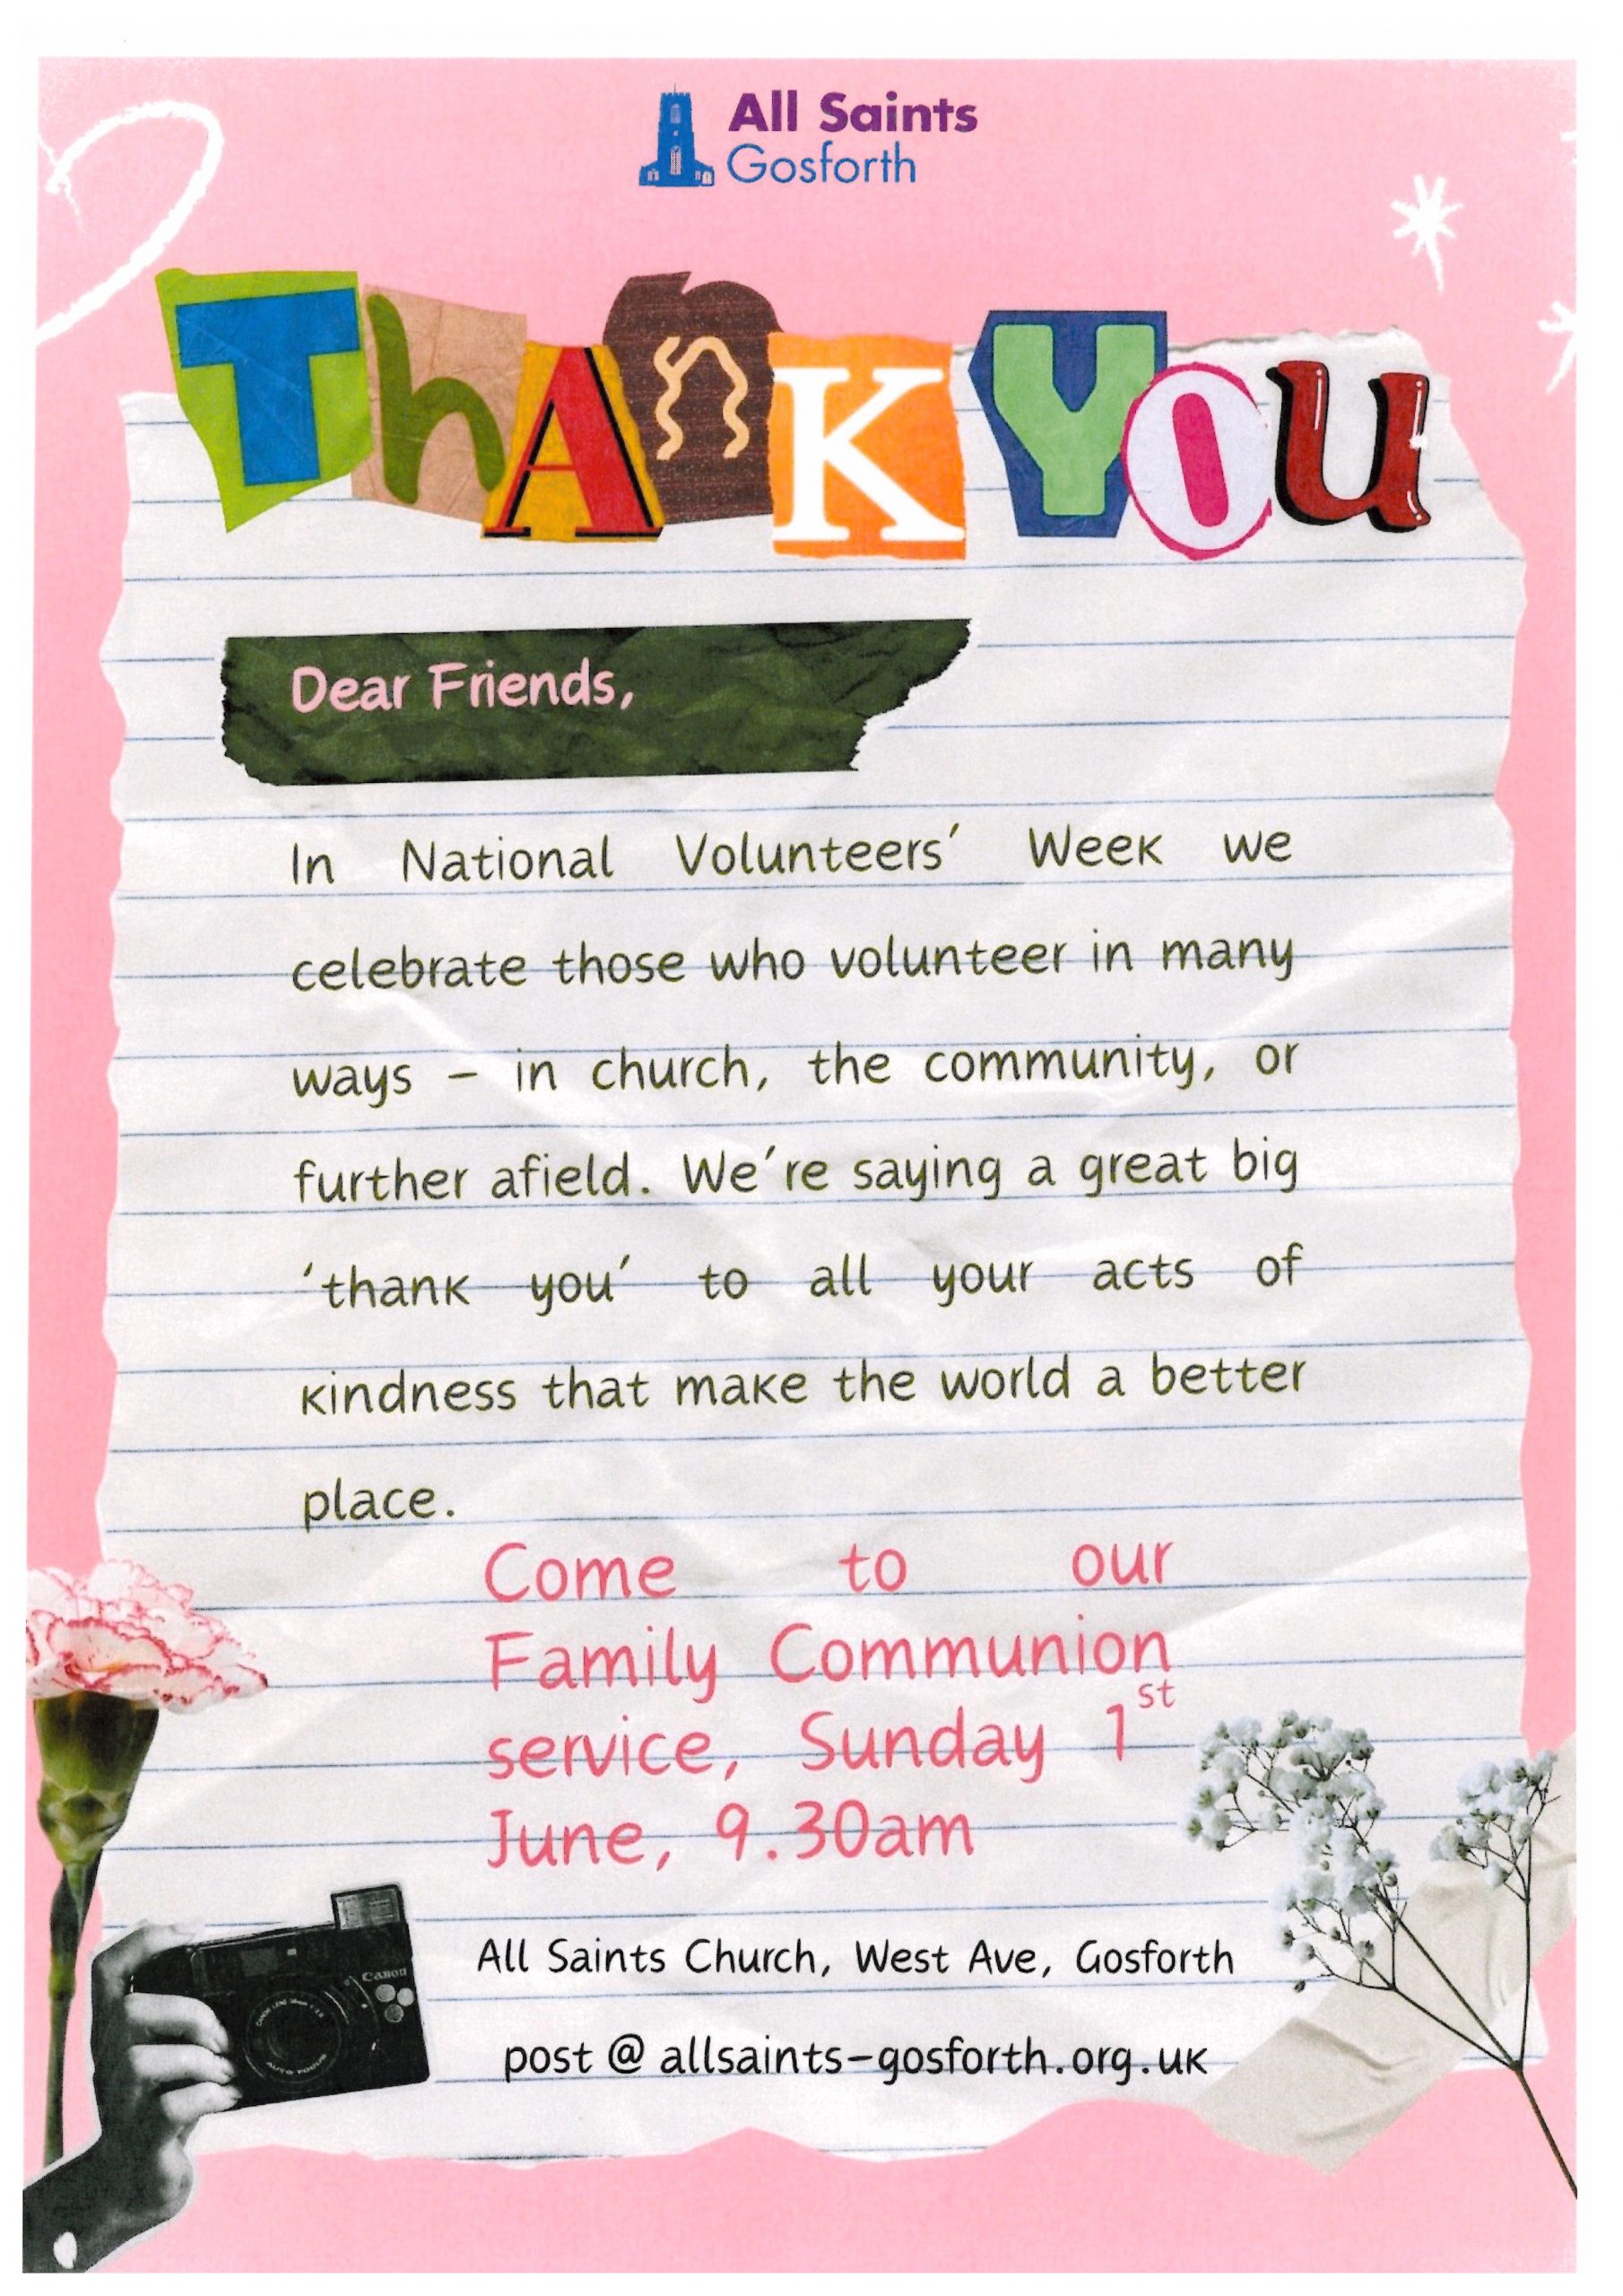 All Saints
Gosforth
ThAnK YOu
Dear Friends,
In National Volunteers' Week we
celebrate those who volunteer in many
ways – in church, the community, or
further afield. We're saying a great big
'thank you' to all your acts of
kindness that make the world a better
place.
Come to our
Family Communion
service, Sunday 1st
June, 9.30am
All Saints Church, West Ave, Gosforth
post @ allsaints-gosforth.org.uk
Canon
AUTO FOCUS